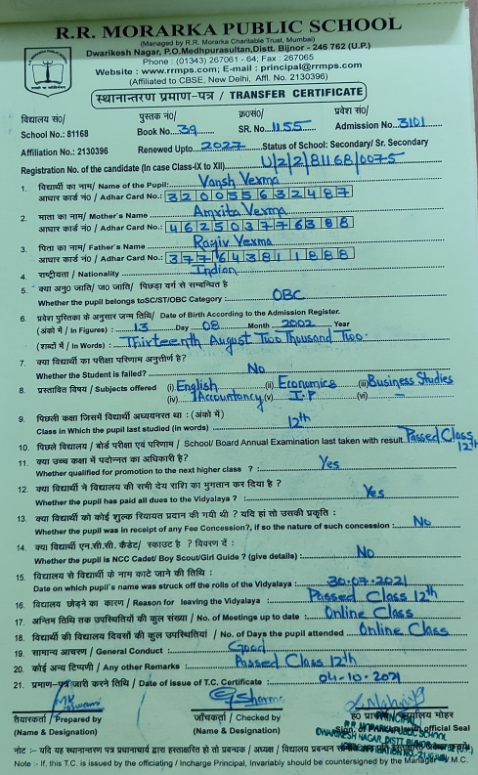 R.R. MORARKA PUBLIC SCHOOL
(Managed by R.R. Morarka Charitable Trust, Mumbai)
Dwarikesh Nagar, P.O.Medhpurasultan, Distt. Bijnor - 246 762 (U.P.)
Phone : (01343) 267061 - 64; Fax : 267065
Website : www.rrmps.com; E-mail : principal@rrmps.com
(Affiliated to CBSE, New Delhi, Affl. No. 2130396)
स्थानान्तरण प्रमाण-पत्र / TRANSFER CERTIFICATE
विद्यालय सं0/ पुस्तक नं0/ क्र0सं0/ प्रवेश सं0/
School No.: 81168 Book No. 39 SR. No. 1155 Admission No. 3101
Affiliation No.: 2130396 Renewed Upto. 2027 Status of School: Secondary/ Sr. Secondary
Registration No. of the candidate (In case Class-IX to XII) U/2/2/81168/0075
1. विद्यार्थी का नाम/ Name of the Pupil: Vansh Verma
आधार कार्ड नं0 / Adhar Card No.: 320055632487
2. माता का नाम/ Mother's Name Amrita Verma
आधार कार्ड नं0 / Adhar Card No.: 462503776388
3. पिता का नाम/ Father's Name Rajiv Verma
आधार कार्ड नं0 / Adhar Card No.: 377643811888
4. राष्ट्रीयता / Nationality Indian
5. क्या अनु0 जाति/ ज0 जाति/ पिछड़ा वर्ग से सम्बन्धित है
Whether the pupil belongs toSC/ST/OBC Category : OBC
6. प्रवेश पुस्तिका के अनुसार जन्म तिथि/ Date of Birth According to the Admission Register.
(अंको में / In Figures) : 13 Day 08 Month 2002 Year
(शब्दों में / In Words) : Thirteenth August Two Thousand Two.
7. क्या विद्यार्थी का परीक्षा परिणाम अनुत्तीर्ण है?
Whether the Student is failed? No
8. प्रस्तावित विषय / Subjects offered (i) English (ii) Economics (iii) Business Studies
(iv) Accountancy (v) I.P (vi) -
9. पिछली कक्षा जिसमें विद्यार्थी अध्ययनरत था : (अंको में)
Class in Which the pupil last studied (in words) 12th
10. पिछले विद्यालय / बोर्ड परीक्षा एवं परिणाम / School/ Board Annual Examination last taken with result. Passed Class 12th
11. क्या उच्च कक्षा में पदोन्नत का अधिकारी है?
Whether qualified for promotion to the next higher class ? : Yes
12. क्या विद्यार्थी ने विद्यालय की सभी देय राशि का भुगतान कर दिया है ?
Whether the pupil has paid all dues to the Vidyalaya ? Yes
13. क्या विद्यार्थी को कोई शुल्क रियायत प्रदान की गयी थी ? यदि हां तो उसकी प्रकृति :
Whether the pupil was in receipt of any Fee Concession?, if so the nature of such concession : No
14. क्या विद्यार्थी एन.सी.सी. कैडेट/ स्काउट है ? विवरण दें :
Whether the pupil is NCC Cadet/ Boy Scout/Girl Guide ? (give details) : No
15. विद्यालय से विद्यार्थी के नाम काटे जाने की तिथि :
Date on which pupil's name was struck off the rolls of the Vidyalaya : 30-07-2021
16. विद्यालय छोड़ने का कारण / Reason for leaving the Vidyalaya : Passed Class 12th
17. अन्तिम तिथि तक उपस्थितियों की कुल संख्या / No. of Meetings up to date : Online Class
18. विद्यार्थी की विद्यालय दिवसों की कुल उपस्थितियां / No. of Days the pupil attended Online Class
19. सामान्य आचरण / General Conduct : Good
20. कोई अन्य टिप्पणी / Any other Remarks : Passed Class 12th
21. प्रमाण-पत्र जारी करने तिथि / Date of issue of T.C. Certificate : 04-10-2021
तैयारकर्ता / Prepared by जाँचकर्ता / Checked by
(Name & Designation) (Name & Designation)
R.R. MORARKA PUBLIC SCHOOL
DWARIKESH NAGAR, DISTT. BIJNOR
नोट :- यदि यह स्थानान्तरण पत्र प्रधानाचार्य द्वारा हस्ताक्षरित हो तो प्रबन्धक / अध्यक्ष / विद्यालय प्रबन्धन
Note :- If this, T.C. is issued by the officiating / Incharge Principal, Invariably should be countersigned by the Manager V.M.C.